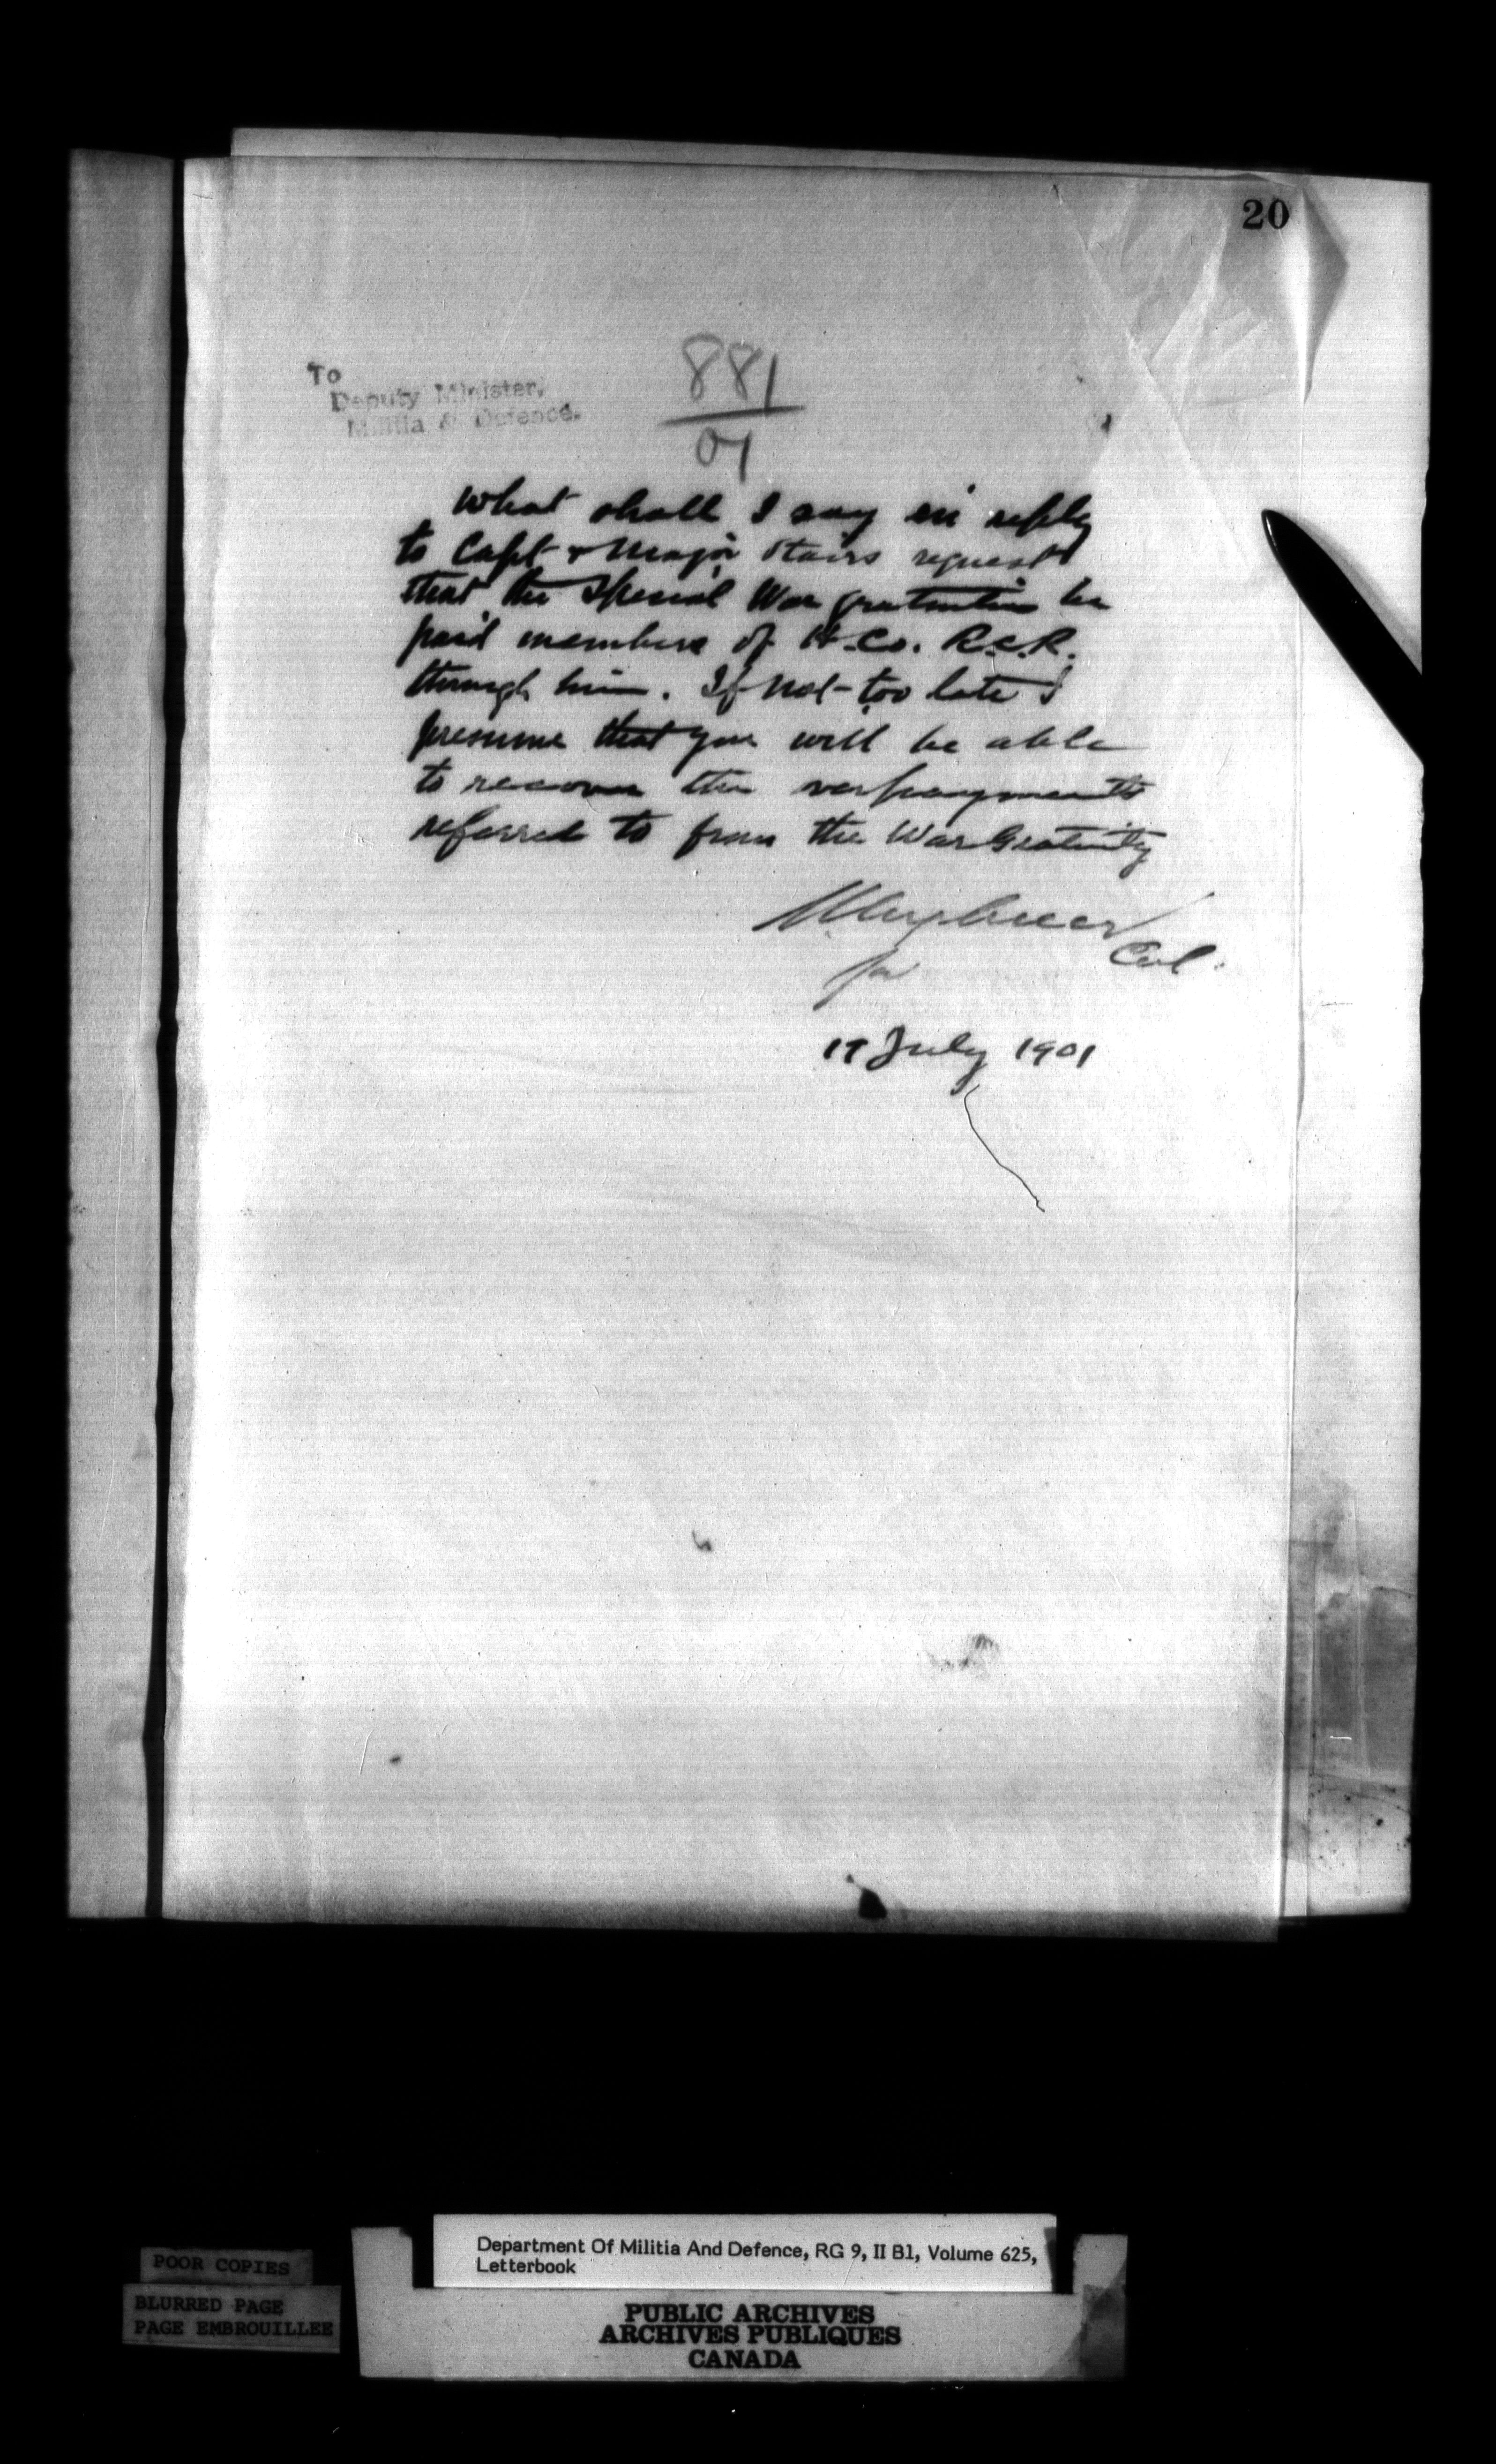 20
To
Deputy Minister,
Militia & Defence.
881
01
What shall I say in reply
to Capt & Major Stairs request
that the Special War gratuities be
paid members of H. Co. R.C.R.
through him. If not too late I
presume that you will be able
to recover the overpayments
referred to from the War Gratuity
Col.
for
17 July 1901
Department Of Militia And Defence, RG 9, II B1, Volume 625,
Letterbook
POOR COPIES
BLURRED PAGE
PAGE EMBROUILLEE
PUBLIC ARCHIVES
ARCHIVES PUBLIQUES
CANADA